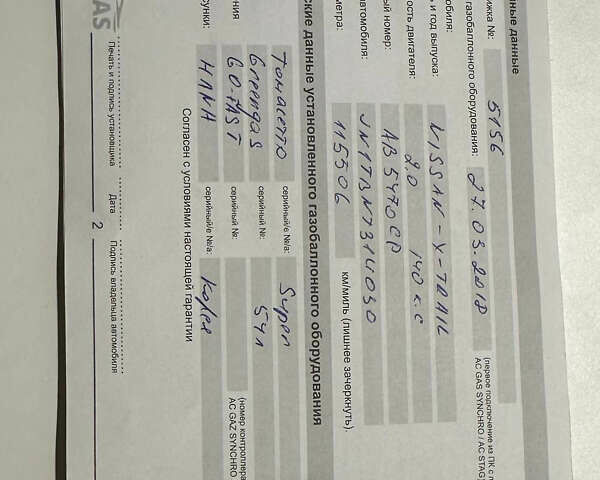 нные данные
жка №: 5156
газобаллонного оборудования: 27.03.2018
(первое подключение из ПК с п
AC GAS SYNCHRO / AC STAG)
обиля:
и год выпуска: NISSAN-X-TRAIL
ость двигателя: 2.0 140 к.с
ый номер: АВ5470СР
автомобиля: JN1TBNT31U030
метра: 115506 км/миль (лишнее зачеркнуть).
ские данные установленного газобаллонного оборудования
Томасетто серийный/е №/а: Super
Greengas серийный №: 54л
ния GO-FAST серийный №:
(номер контроллера
AC GAZ SYNCHRO
рунки: HANA серийный/е №/а: Корея
Согласен с условиями настоящей гарантии
AS
Печать и подпись установщика Дата Подпись владельца автомобиля
2